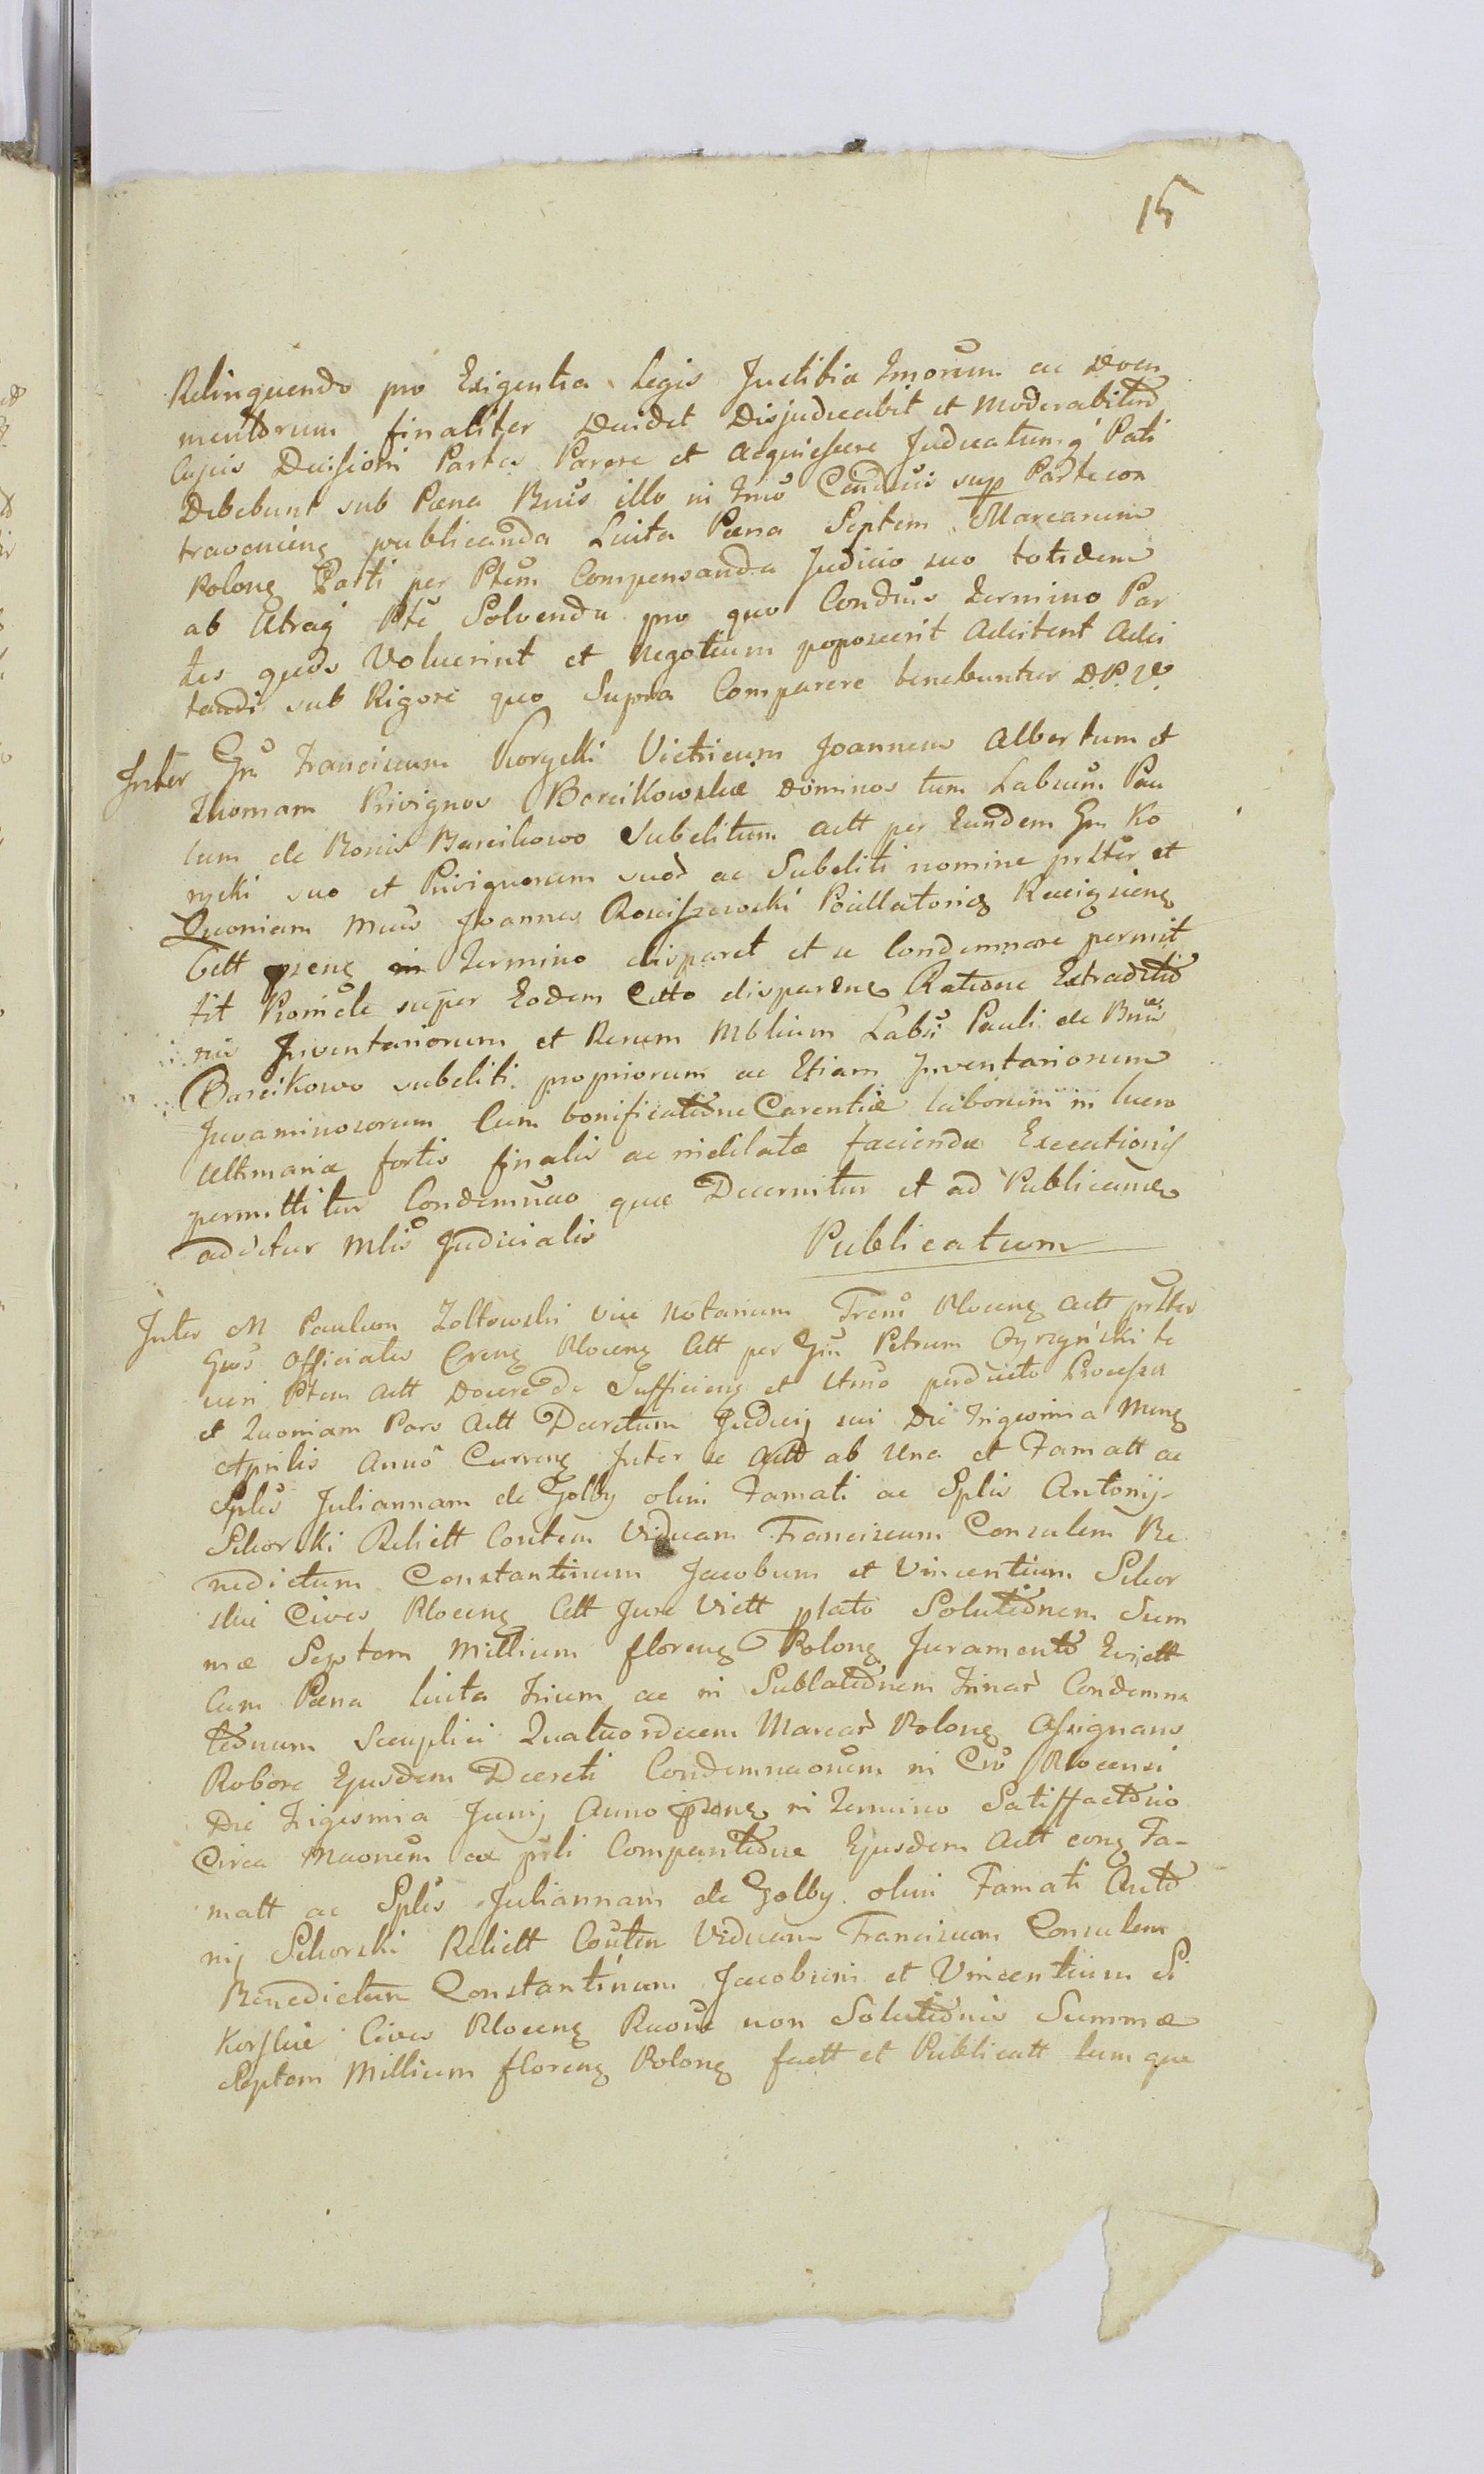 15
Relinquendo pro Exigentia Legis Justitiæ Imorum ac Docu
mentorum finaliter Decidet Disjudicabit et Moderabitur
Cujus Decisioni Partes Parere et Acquiescere Judicatumq Pati
Debebunt sub Pæna Bnis illo in Tmo Conducis sup Parte con
traveniens publicanda Luita Pæna Septem Marcarum
Polong Parti per Ptem Compensanda Judicio suo totidem
ab Utraq Pte Solvenda pro quo Conducs Termino Par
tes quos Voluerint et Negotium poposcerit Adcitent Adci
tandi sub Rigore quo Supra Comparere tenebuntur D.P.V.
Inter Gm Franciscum Korycki Victricum Joannem Albertum et
Thomam Privignos Barcikowskie Dominos tum Labum Pau
lum de Bonis Barcikowo Subditum Actt per Eundem Gm Ko
rycki suo et Privignorum suor ac Subditi nomine prltes et
Quoniam Mcus Joannes Rosciszewski Pocillatorig Raciazieng
Citt pseng in Termino disparet et se Condemnare permit
tit Proinde super Eodem Citto disparenes Ratione Extraditio
nis Inventariorum et Rerum Mblium Labi Pauli de Bnis
Barcikowo subditi propriorum ac Etiam Inventariorum
Juvaminosorum Cum bonificatione Carentiæ laborum in lucro
Ultimariæ fortis finalis ac nidilatæ faciendæ Executionis
permittitur Condemnao quæ Decernitur et ad Publicane
adcitur Mlis Judicialis Publicatum
Inter M Paulum Zoltowski Vice Notarium Trem Ploceng Actt prltes
Gnos Officiales Creng Ploceng Citt per Gm Petrum Cyrzynski te
neri Ptem Actt Docere de Sufficieng et Utmo perducto Processu
et Quoniam Pars Actt Decretum Judicij sui Die Trigesima Meng
Aprilis Anno Curreng Inter se Actt ab Una et Famatt ac
Splis Juliannam de Golby olim Famati ac Splis Antonij
Sikorski Relictt Contem Viduam Franciscum Consulem Be
nedictum Constantinum Jacobum et Vincentium Sikor
skie Cives Ploceng Citt Jure Victt plato Solutionem Sum
mæ Septem Millium floreng Polong Juramento Evictt
Cum Pæna luita Trium ac in Sublationem Trinar Condemna
tionum Scuplici Quatuordecem Marcar Polong Assignans
Robore Ejusdem Decreti Condemnaonem in Cro Plocensi
Die Trigesima Junij Anno pseng in Termino Satisfactionis
Circa Maonem ex prli Comparitione Ejusdem Actt cong Fa-
matt ac Splis Juliannam de Golby olim Famati Anto
nij Sikorski Relictt Contem Viduam Franciscum Consulem
Benedictum Constantinum Jacobum et Vincentium Si
korskie Cives Ploceng Raone non Solutionis Summæ
Septem Millium floreng Polong factt et Publicatt tum que